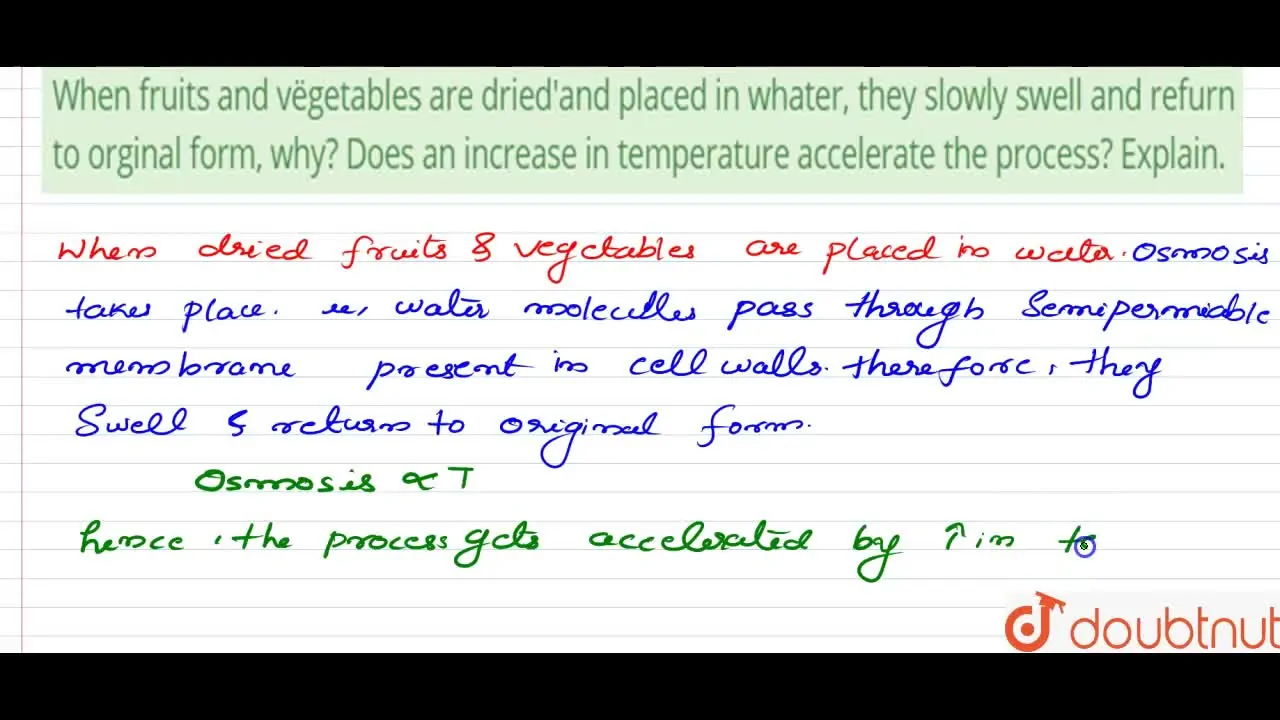 When fruits and vëgetables are dried'and placed in whater, they slowly swell and refurn
to orginal form, why? Does an increase in temperature accelerate the process? Explain.
When dried fruits & vegetables are placed in water. Osmosis
takes place. ie, water molecules pass through Semipermiable
membrane present in cell walls. therefore, they
Swell & return to original form.
Osmosis ∝ T
hence, the process gets accelerated by ↑ in te
doubtnut